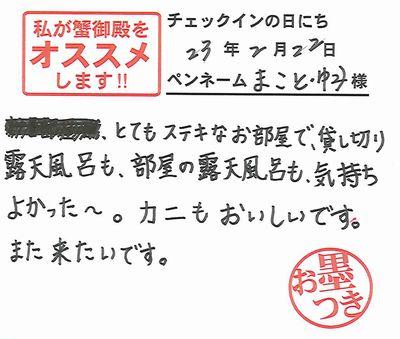 私が蟹御殿を
オススメ
します!!
チェックインの日にち
23年2月22日
ペンネーム まこと・ゆみ 様
、とてもステキなお部屋で、貸し切り
露天風呂も、部屋の露天風呂も、気持ち
よかった〜。カニもおいしいです。
また来たいです。
お墨つき